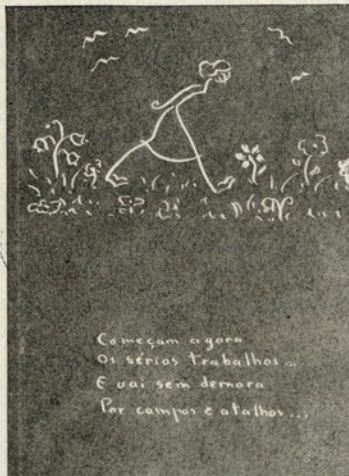 Começam agora
Os sérios trabalhos...
E vai sem demora
Por campos e atalhos...